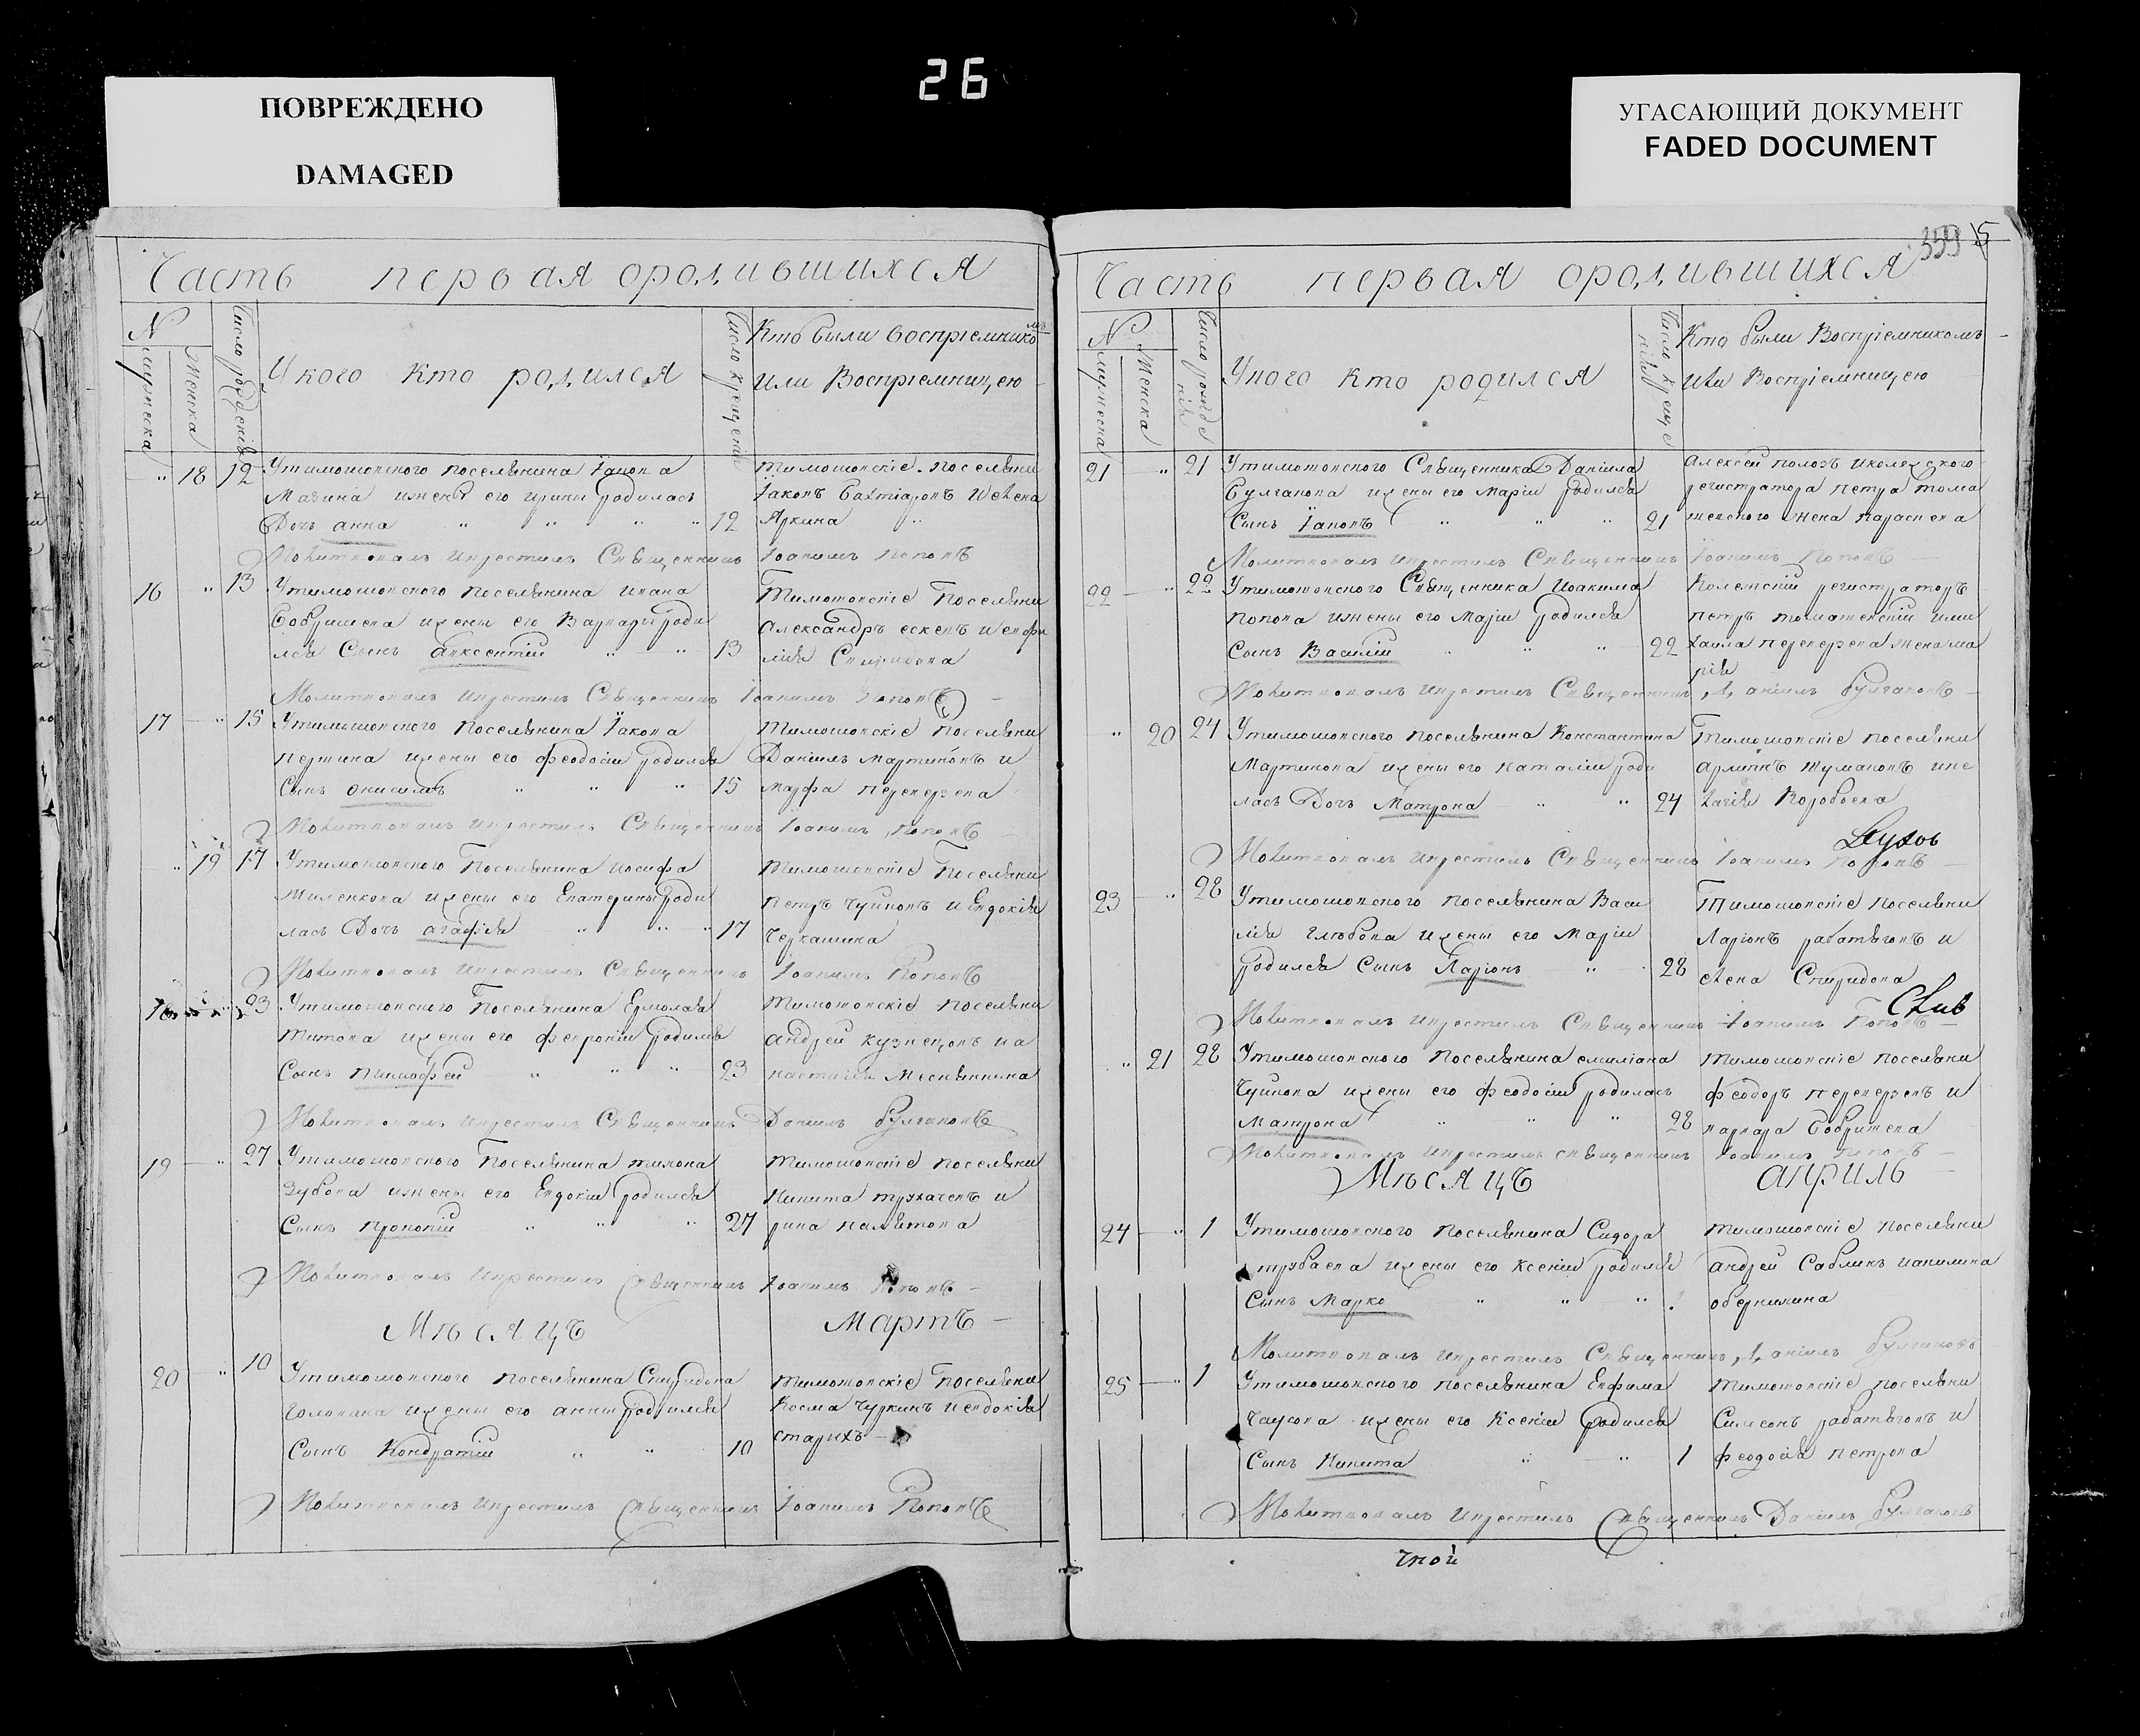 26
ПОВРЕЖДЕНО
DAMAGED
УГАСАЮЩИЙ ДОКУМЕНТ
FADED DOCUMENT
Часть первая ородившихся
№
мужеска
Женска
Число рожденія
У кого кто родился
Число крещенія
Кто были воспріемникомъ
или Воспріемницею
18 12 Утимошовского поселянина Іакова
Мазина ижены его ирины родилась
Дочь анна 12
тимошовскіе поселяни
Іаковъ Бахтіаровъ иелена
Яркина
Молитвовалъ икрестилъ Священникъ Іоакимъ Поповъ
16 13 Утимошовского поселянина ивана
Бобришева ижены его Варвары роди
лся Сынъ авксентій 13
Тимошовскіе Поселяни
Александръ ескевъ иевфи
мія Спиридова
Молитвовалъ икрестилъ Священникъ Іоакимъ Поповъ
17 15 Утимошовского Поселянина Іакова
ижены его феодосіи родился
Сынъ онисимъ 15
тимошовскіе Поселяни
Даніилъ мартиновъ и
марфа переверзева
Молитвовалъ икрестилъ Священникъ Іоакимъ Поповъ
19 17 Утимошовского Поселянина иосифа
Миленкова ижены его Екатерины роди
лась Дочь агафія 17
тимошовскіе Поселяни
Петръ Чуйковъ и Евдокія
Черкашина
Молитвовалъ икрестилъ Священникъ Іоакимъ Поповъ
18 23 Утимошовского Поселянина Ермолая
титова ижены его февроніи родился
Сынъ тимофей 23
тимошовскіе поселяни
андрей кузнецовъ иа
настасія Меснянкина
Молитвовалъ икрестилъ Священникъ Даніилъ булгаковъ
19 27 Утимошовского Поселянина тихона
Зубова ижены его Евдокіи родился
Сынъ прокопій 27
тимошовскіе поселяни
Никита трухачевъ и
рина
Молитвовалъ икрестилъ Священникъ Іоакимъ Поповъ
Мѣсяцъ Мартъ
20 10 Утимошовского поселянина Спиридона
головина ижены его анны родился
Сынъ Кондратій 10
тимошовскіе Поселяни
Косма Чуркинъ иевдокія
старихъ
Молитвовалъ икрестилъ Священникъ Іоакимъ Поповъ
359 5
Часть первая ородившихся
№
мужеска
Женска
Число рожде
нія
Укого кто родился
Число креще
нія
Кто были Воспріемникомъ
или Воспріемницею
21 21 Утимошовского Священника Даніила
Булгакова ижены его маріи родился
Сынъ Іаковъ 21
Алексей полозъ иколежского
регистратора петра тома
шевского жена параскева
Молитвовалъ икрестилъ Священникъ Іоакимъ Поповъ
22 22 Утимошовского Священника Иоакима
попова ижены его Маріи родился
Сынъ Василій 22
Колежскій регистраторъ
петръ томашевскій ими
хаила переверзева жена ма
рія
Молитвовалъ икрестилъ Священникъ Даніилъ булгаковъ
20 24 Утимошовского поселянина Константина
Мартинова ижены его наталіи роди
лась Дочь Матрона 24
Тимошовскіе поселяни
тумановъ ипе
лагія Воробьева
Молитвовалъ икрестилъ Священникъ Іоакимъ Поповъ
23 28 Утимошовского поселянина Васи
лія глѣбова ижены его Маріи
родился Сынъ Ларіонъ 28
Тимошовскіе поселяни
Ларіонъ рабатяговъ и
елена Спиридова
Молитвовалъ икрестилъ Священникъ Іоакимъ Поповъ
21 28 Утимошовского поселянина емиліана
Чуйкова ижены его феодосіи родилась
Матрона 28
тимошовскіе поселяни
феодоръ переверзевъ и
варвара Бобришева
Молитвовалъ икрестилъ священникъ Іоакимъ Поповъ
Мѣсяцъ априль
24 1 Утимошовского поселянина Сидора
трубаева ижены его ксеніи родился
Сынъ Марко 1
тимошовскіе поселяни
андрей Саблинъ иакилина
оберишина
Молитвовалъ икрестилъ Священникъ Даніилъ булгаковъ
25 1 Утимошовского поселянина Евфима
Чаусова ижены его Ксеніи родился
Сынъ Никита 1
тимошовскіе поселяни
Симеонъ рабатяговъ и
феодосія петрова
Молитвовалъ икрестилъ Священникъ Даніилъ булгаковъ